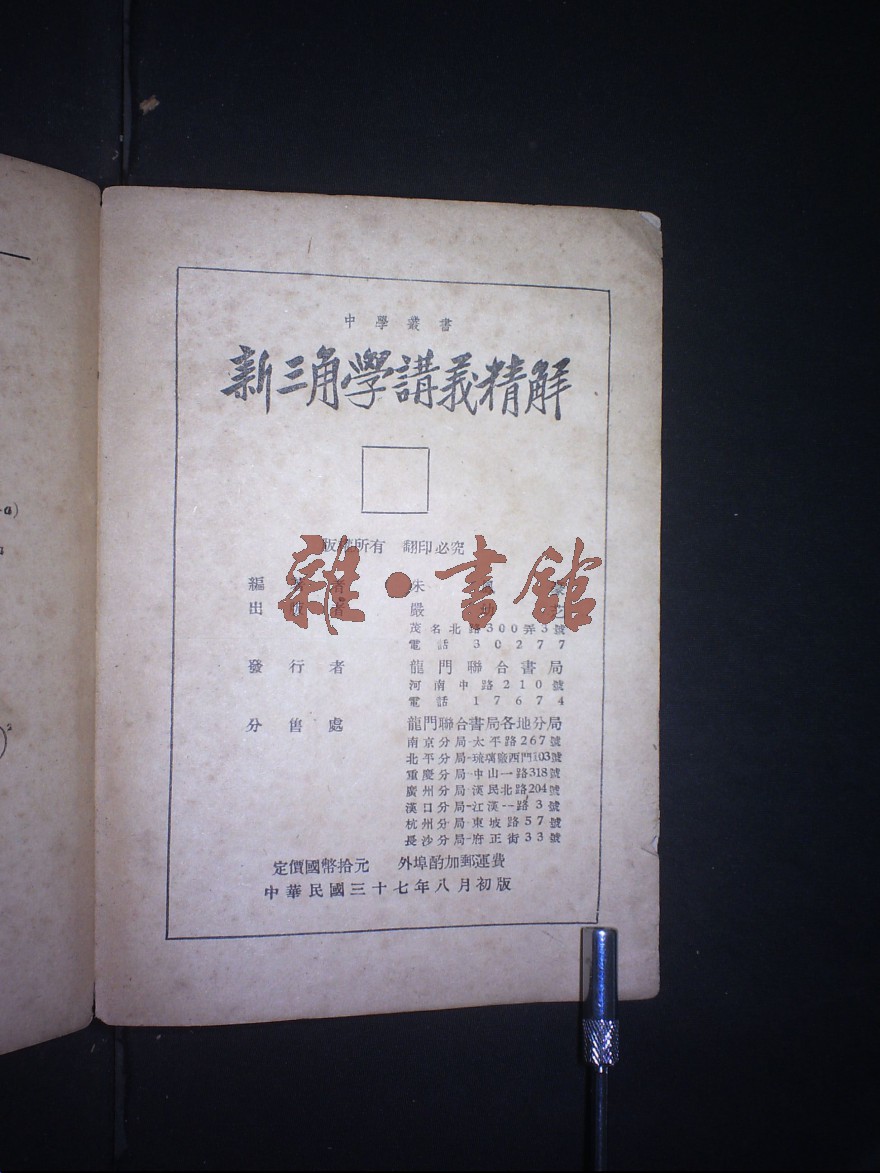 中學叢書
新三角學講義精解
版權所有 翻印必究
編著者 朱
出版者 嚴幼芝
茂名北路300弄3號
電話 30277
發行者 龍門聯合書局
河南中路210號
電話 17674
分售處 龍門聯合書局各地分局
南京分局-太平路267號
北平分局-琉璃廠西門103號
重慶分局-中山一路318號
廣州分局-漢民北路204號
漢口分局-江漢一路3號
杭州分局-東坡路57號
長沙分局-府正街33號
定價國幣拾元 外埠酌加郵運費
中華民國三十七年八月初版
雜·書館